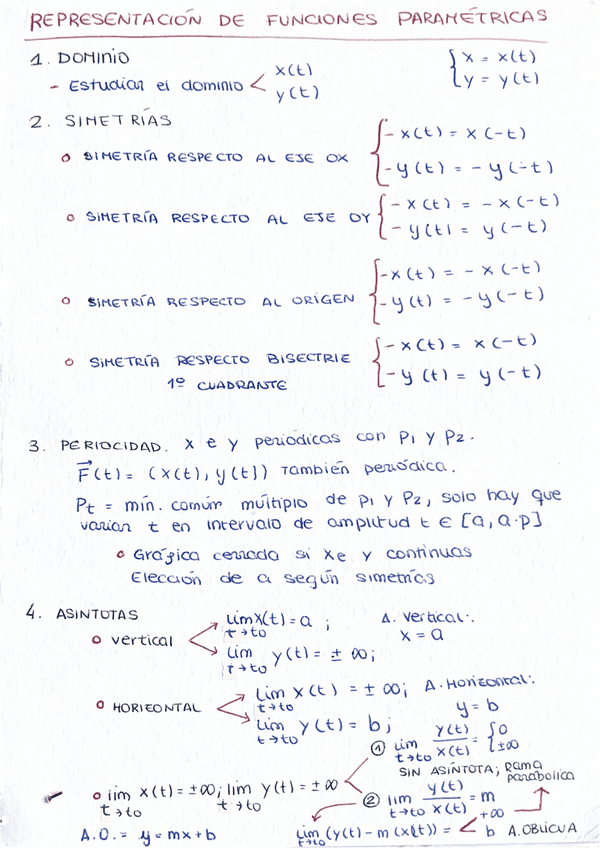 REPRESENTACIÓN DE FUNCIONES PARAMÉTRICAS
1. DOMINIO
- Estudiar el dominio < x(t)
y(t)
{ x = x(t)
y = y(t)
2. SIMETRÍAS
o SIMETRÍA RESPECTO AL EJE OX { - x(t) = x(-t)
- y(t) = - y(-t)
o SIMETRÍA RESPECTO AL EJE OY { - x(t) = - x(-t)
- y(t) = y(-t)
o SIMETRÍA RESPECTO AL ORIGEN { - x(t) = - x(-t)
- y(t) = - y(-t)
o SIMETRÍA RESPECTO BISECTRIE { - x(t) = x(-t)
1º CUADRANTE - y(t) = y(-t)
3. PERIOCIDAD. x e y periódicas con P1 y P2.
F⃗(t) = (x(t), y(t)) También periódica.
Pt = mín. común múltiplo de P1 y P2, solo hay que
variar t en intervalo de amplitud t ∈ [a, a·p]
o Gráfica cerrada si x e y continuas
Elección de a según simetrías
4. ASINTOTAS
o vertical < lim x(t) = a ; A. vertical:.
t→to x = a
lim y(t) = ± ∞;
t→to
o HORIZONTAL < lim x(t) = ± ∞; A. Horizontal:
t→to y = b
lim y(t) = b;
t→to
o lim x(t) = ± ∞; lim y(t) = ± ∞
t→to t→to
① lim y(t)/x(t) = { 0
t→to ±∞
SIN ASÍNTOTA; Rama
parabólica
② lim y(t)/x(t) = m
t→to
A.O. = y = mx + b
lim (y(t) - m (x(t)) = < +∞
t→to b A. OBLICUA